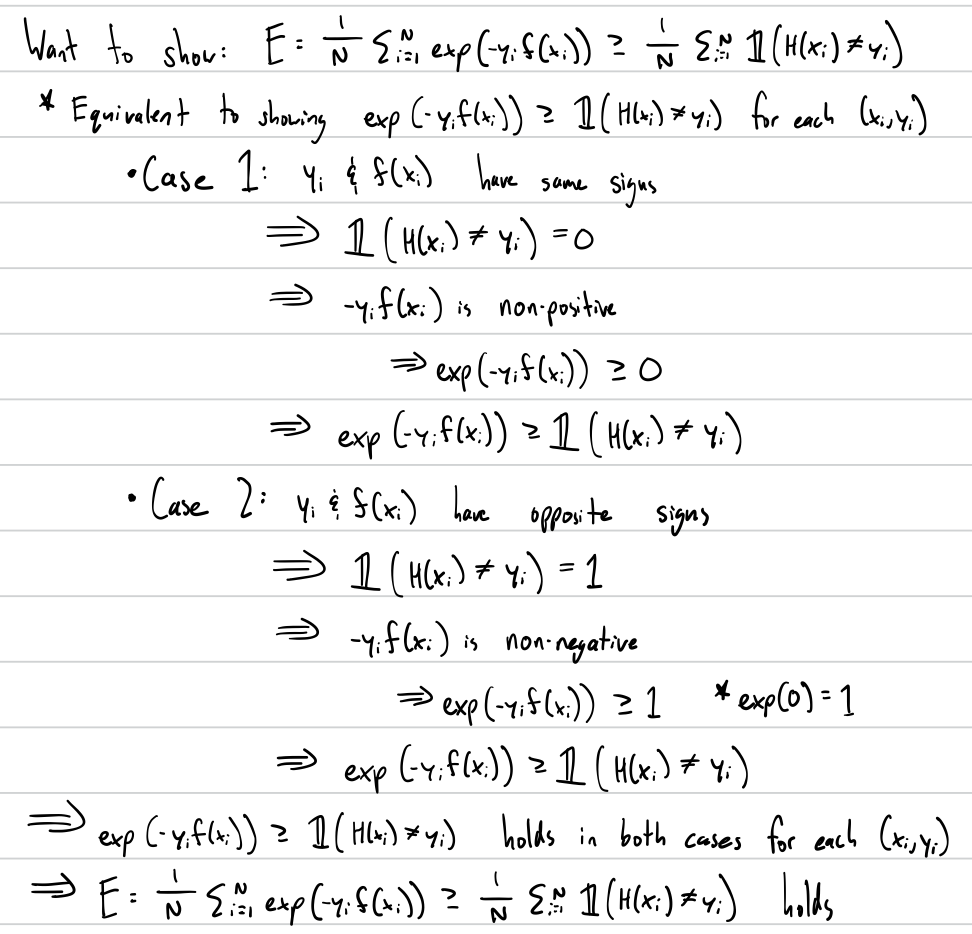 Want to show: E = 1/N Σ_{i=1}^N exp(-y_i f(x_i)) ≥ 1/N Σ_{i=1}^N 𝟙(H(x_i) ≠ y_i)
* Equivalent to showing exp(-y_i f(x_i)) ≥ 𝟙(H(x_i) ≠ y_i) for each (x_i, y_i)
• Case 1: y_i & f(x_i) have same signs
⟹ 𝟙(H(x_i) ≠ y_i) = 0
⟹ -y_i f(x_i) is non-positive
⟹ exp(-y_i f(x_i)) ≥ 0
⟹ exp(-y_i f(x_i)) ≥ 𝟙(H(x_i) ≠ y_i)
• Case 2: y_i & f(x_i) have opposite signs
⟹ 𝟙(H(x_i) ≠ y_i) = 1
⟹ -y_i f(x_i) is non-negative
⟹ exp(-y_i f(x_i)) ≥ 1 * exp(0) = 1
⟹ exp(-y_i f(x_i)) ≥ 𝟙(H(x_i) ≠ y_i)
⟹ exp(-y_i f(x_i)) ≥ 𝟙(H(x_i) ≠ y_i) holds in both cases for each (x_i, y_i)
⟹ E = 1/N Σ_{i=1}^N exp(-y_i f(x_i)) ≥ 1/N Σ_{i=1}^N 𝟙(H(x_i) ≠ y_i) holds